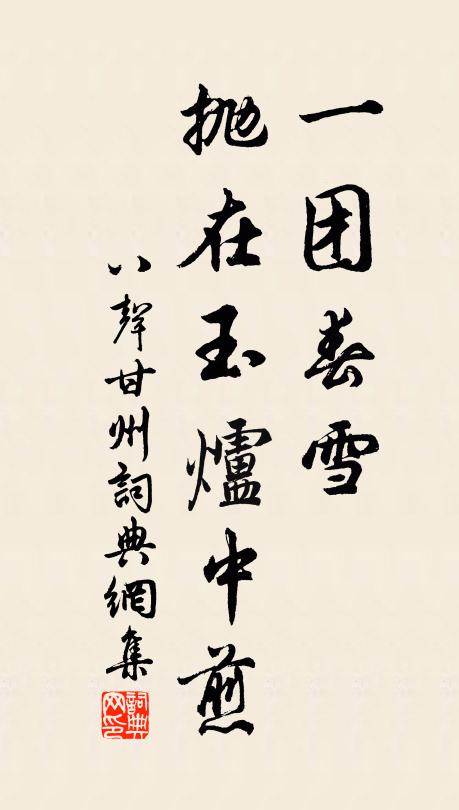 一团春雪
抛在玉爐中煎
八聲甘州詞典網集
詞典网印